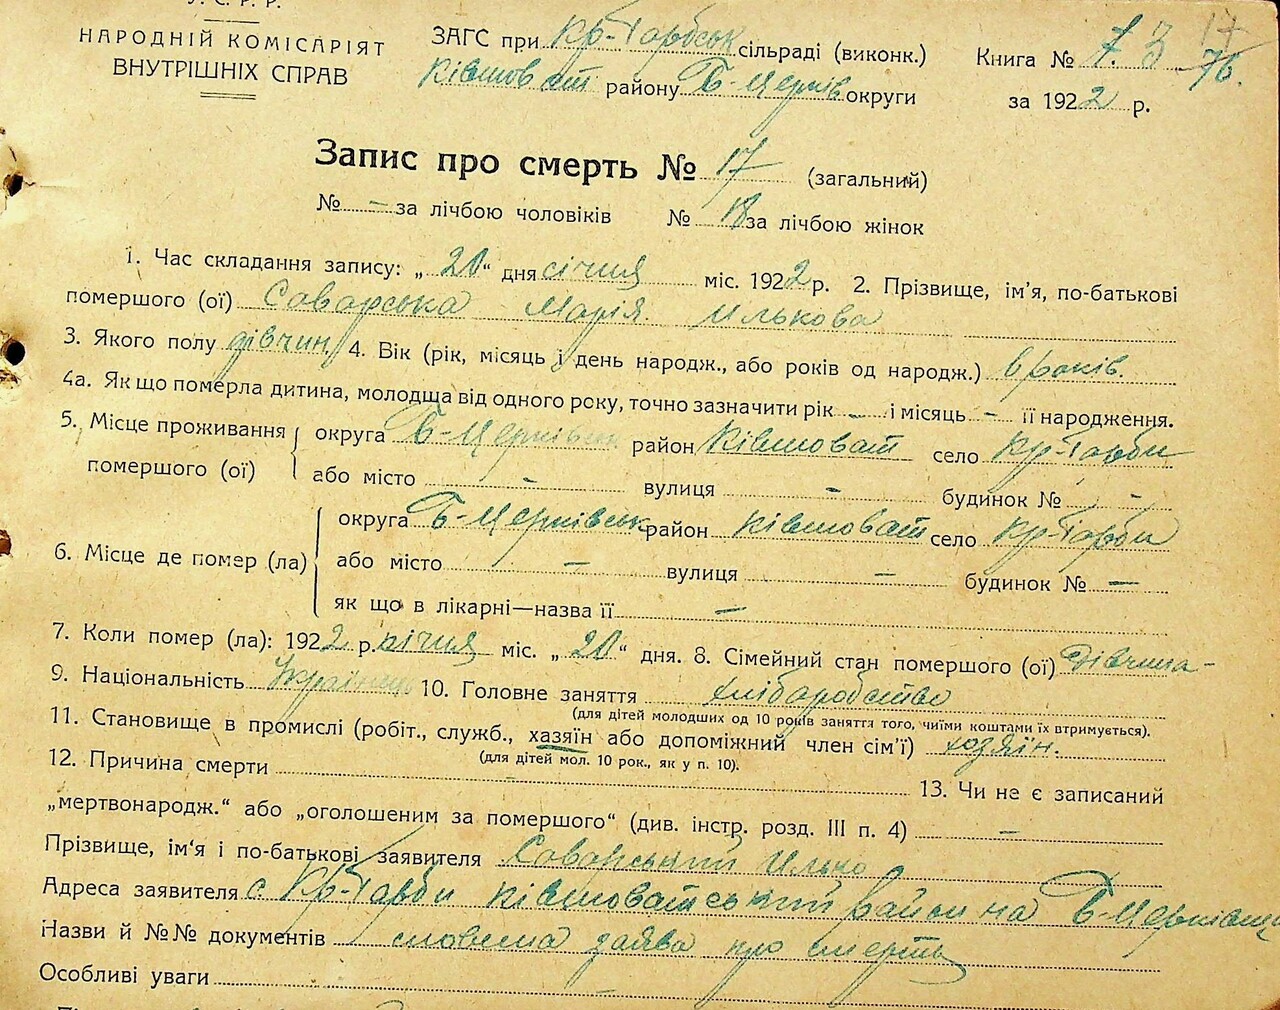 У. С. Р. Р.
НАРОДНІЙ КОМІСАРІЯТ
ВНУТРІШНІХ СПРАВ
ЗАГС при Кр-Гарбськ сільраді (виконк.)
Ківшоват району Б-Церків округи
Книга № 3
за 1922 р.
17
76.
Запис про смерть № 17 (загальний)
№ - за лічбою чоловіків № 18 за лічбою жінок
1. Час складання запису: „20“ дня січня міс. 1922 р. 2. Прізвище, ім'я, по-батькові
помершого (ої) Саварська Марія Илькова
3. Якого полу дівчин 4. Вік (рік, місяць і день народж., або років од народж.) 6 років.
4а. Як що померла дитина, молодща від одного року, точно зазначити рік - і місяць - її народження.
5. Місце проживання помершого (ої) округа Б-Церківськ район Ківшоват село Кр-Гарби
або місто - вулиця - будинок № -
6. Місце де помер (ла) округа Б-Церківськ район Ківшоват село Кр-Гарби
або місто - вулиця - будинок № -
як що в лікарні—назва її -
7. Коли помер (ла): 1922 р. січня міс. „20“ дня. 8. Сімейний стан помершого (ої) Дівчина-
9. Національність Українець 10. Головне заняття хліборобство
(для дітей молодших од 10 років заняття того, чиїми коштами їх втримується).
11. Становище в промислі (робіт., служб., хазяїн або допоміжний член сім'ї) хозяїн.
(для дітей мол. 10 рок., як у п. 10).
12. Причина смерти 13. Чи не є записаний
„мертвонародж.“ або „оголошеним за померщого“ (див. інстр. розд. III п. 4) -
Прізвище, ім'я і по-батькові заявителя Саварський Илько
Адреса заявителя с. Кр-Гарби Ківшоватський район на Б-Церківщ
Назви й №№ документів словесна заява про смерть
Особливі уваги -